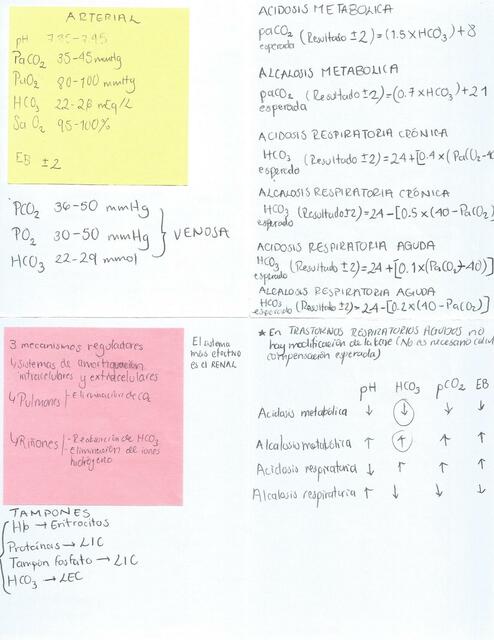 ARTERIAL
pH 7.35-7.45
PaCO₂ 35-45 mmHg
PaO₂ 80-100 mmHg
HCO₃ 22-28 mEq/L
Sa O₂ 95-100%
EB ±2
PCO₂ 36-50 mmHg
PO₂ 30-50 mmHg
HCO₃ 22-29 mmol
VENOSA
ACIDOSIS METABOLICA
paCO₂ esperada (Resultado ±2) = (1.5 x HCO₃) + 8
ALCALOSIS METABOLICA
paCO₂ esperada (Resultado ±2) = (0.7 x HCO₃) + 21
ACIDOSIS RESPIRATORIA CRÓNICA
HCO₃ esperado (Resultado ±2) = 24 + [0.4 x (PaCO₂-40
ALCALOSIS RESPIRATORIA CRÓNICA
HCO₃ esperado (Resultado ±2) = 24 - [0.5 x (40 - PaCO₂)
ACIDOSIS RESPIRATORIA AGUDA
HCO₃ esperado (Resultado ±2) = 24 + [0.1 x (PaCO₂-40)]
ALCALOSIS RESPIRATORIA AGUDA
HCO₃ esperado (Resultado ±2) = 24 - [0.2 x (40 - PaCO₂)]
3 mecanismos reguladores
↳ Sistemas de amortiguación
intracelulares y extracelulares
↳ Pulmones - Eliminación de CO₂
↳ Riñones - Reabsorción de HCO₃
- Eliminación de iones
hidrógeno
El sistema
más efectivo
es el RENAL
TAMPONES
Hb → Eritrocitos
Proteínas → LIC
Tampón fosfato → LIC
HCO₃ → LEC
* En TRASTORNOS RESPIRATORIOS AGUDOS no
hay modificación de la base (No es necesario calcul
compensación esperada)
pH HCO₃ pCO₂ EB
Acidosis metabólica ↓ ↓ ↓ ↓
Alcalosis metabólica ↑ ↑ ↑ ↑
Acidosis respiratoria ↓ ↑ ↑ ↑
Alcalosis respiratoria ↑ ↓ ↓ ↓